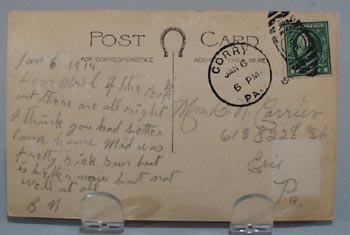 POST CARD
FOR CORRESPONDENCE
CORRY
JAN 6
6 PM.
PA.
Jan 6 1914
Dear
out there are all right
I think you had better
come home Mid was
pretty sick Sun but
is better now but not
well at all
B N
Mrs B N Carrier
618 E 22nd St.
Erie
Pa.